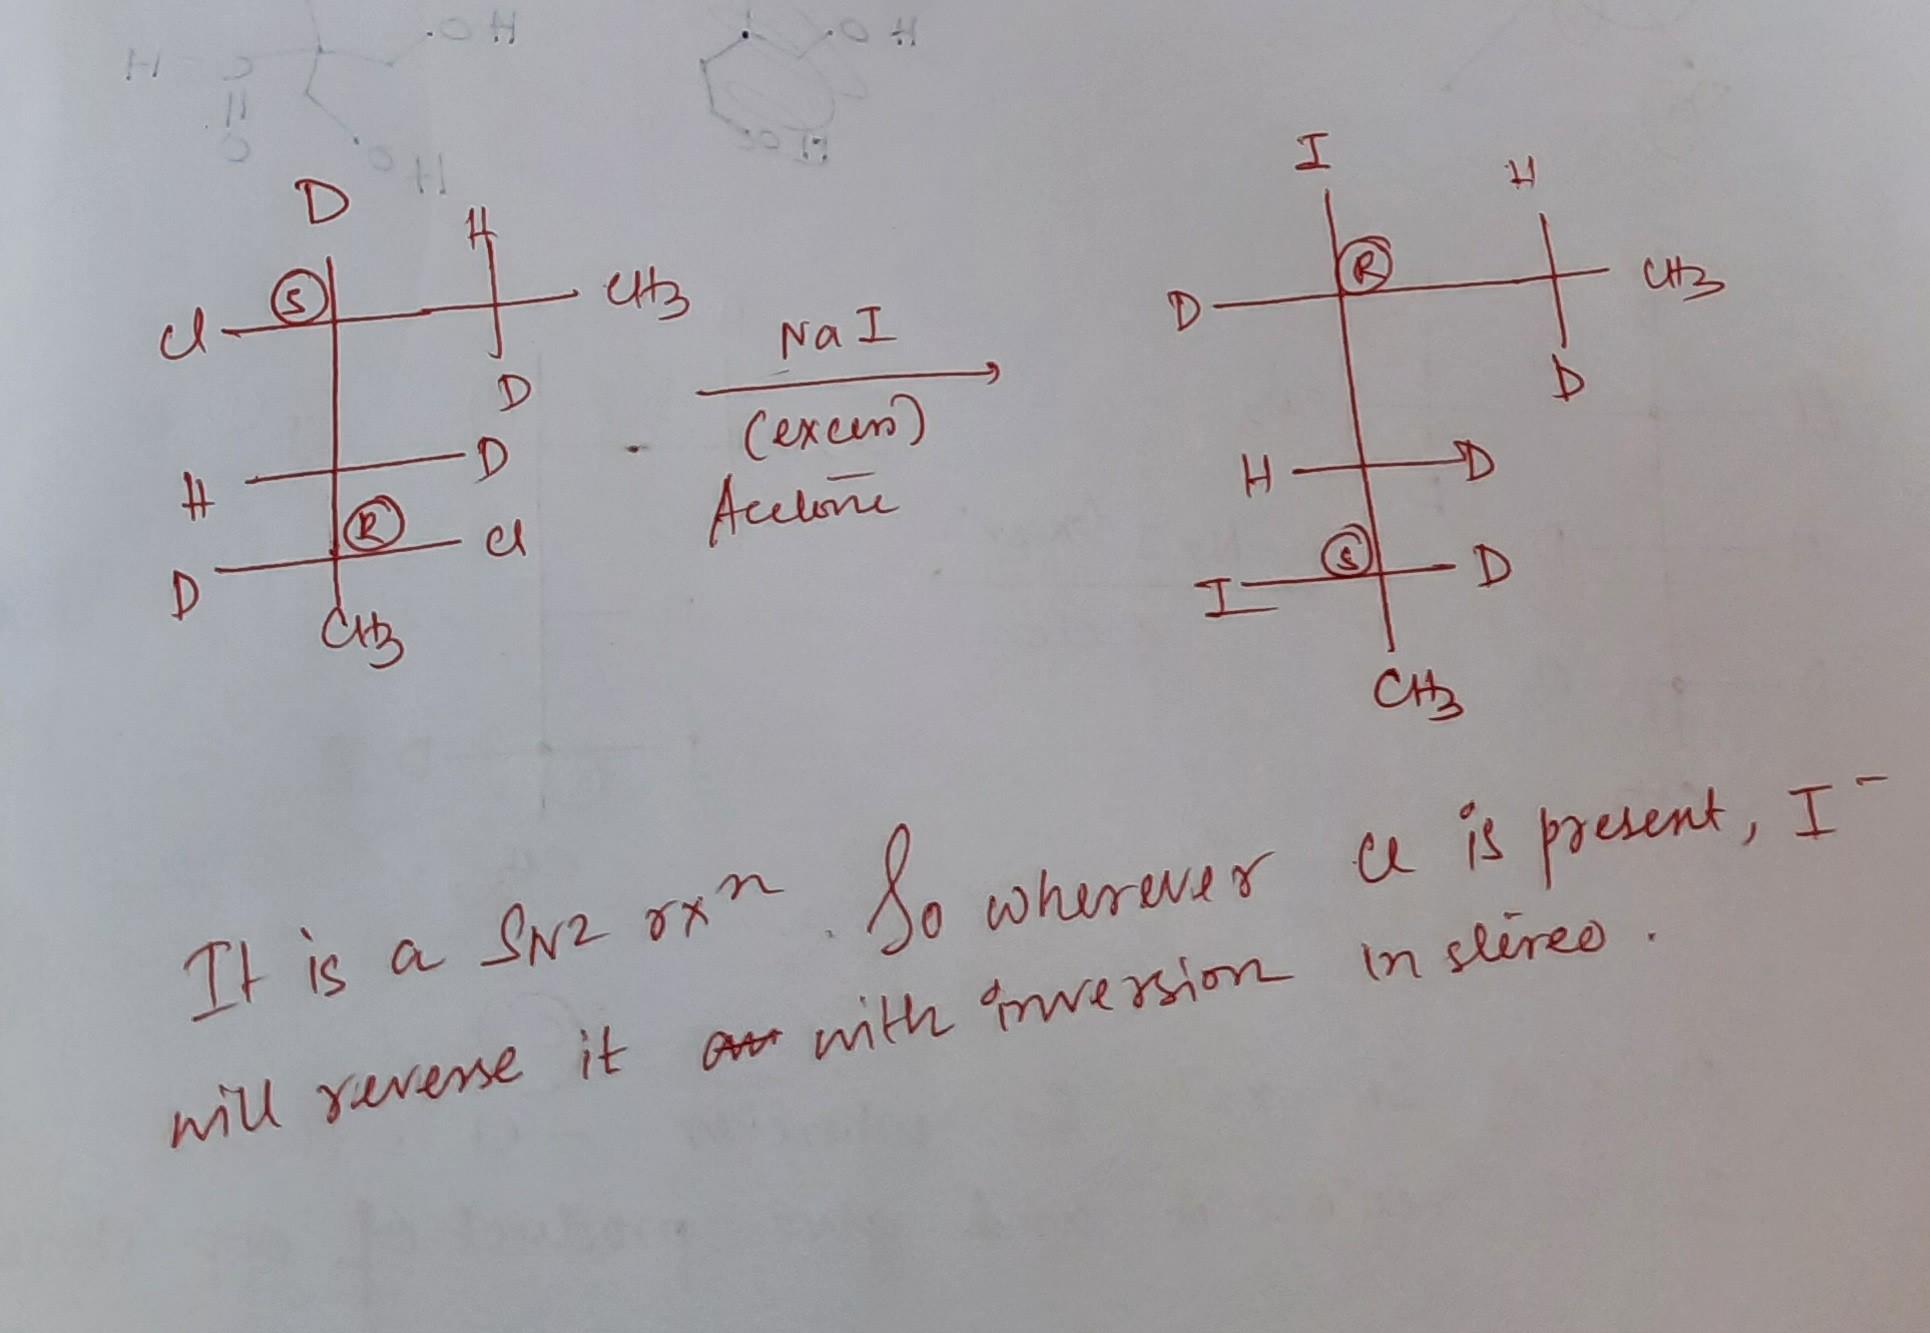 I
H
D
H
S
R
Cl
CH3
D
CH3
NaI
D
D
D
(excess)
H
D
H
D
Acetone
R
Cl
S
D
D
I
CH3
CH3
It is a SN2 rxn. So wherever Cl is present, I-
will reverse it with inversion in stereo.